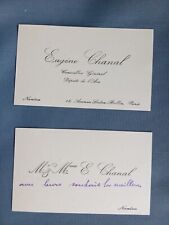 Eugène Chanal
Conseiller Général
Député de l'Ain
Nantua
16, Avenue Ledru-Rollin, Paris
Mr & Mme E. Chanal
avec leurs souhaits les meilleurs
Nantua